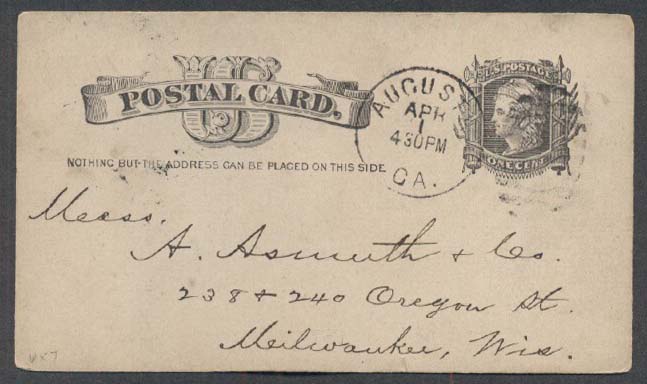 US
POSTAL CARD.
NOTHING BUT THE ADDRESS CAN BE PLACED ON THIS SIDE
AUGUS
APR
1
430PM
GA.
U.S. POSTAGE
ONE CENT
Mess.
A. Asmuth & Co.
238 & 240 Oregon St.
Meilwaukee, Wis.
UX7